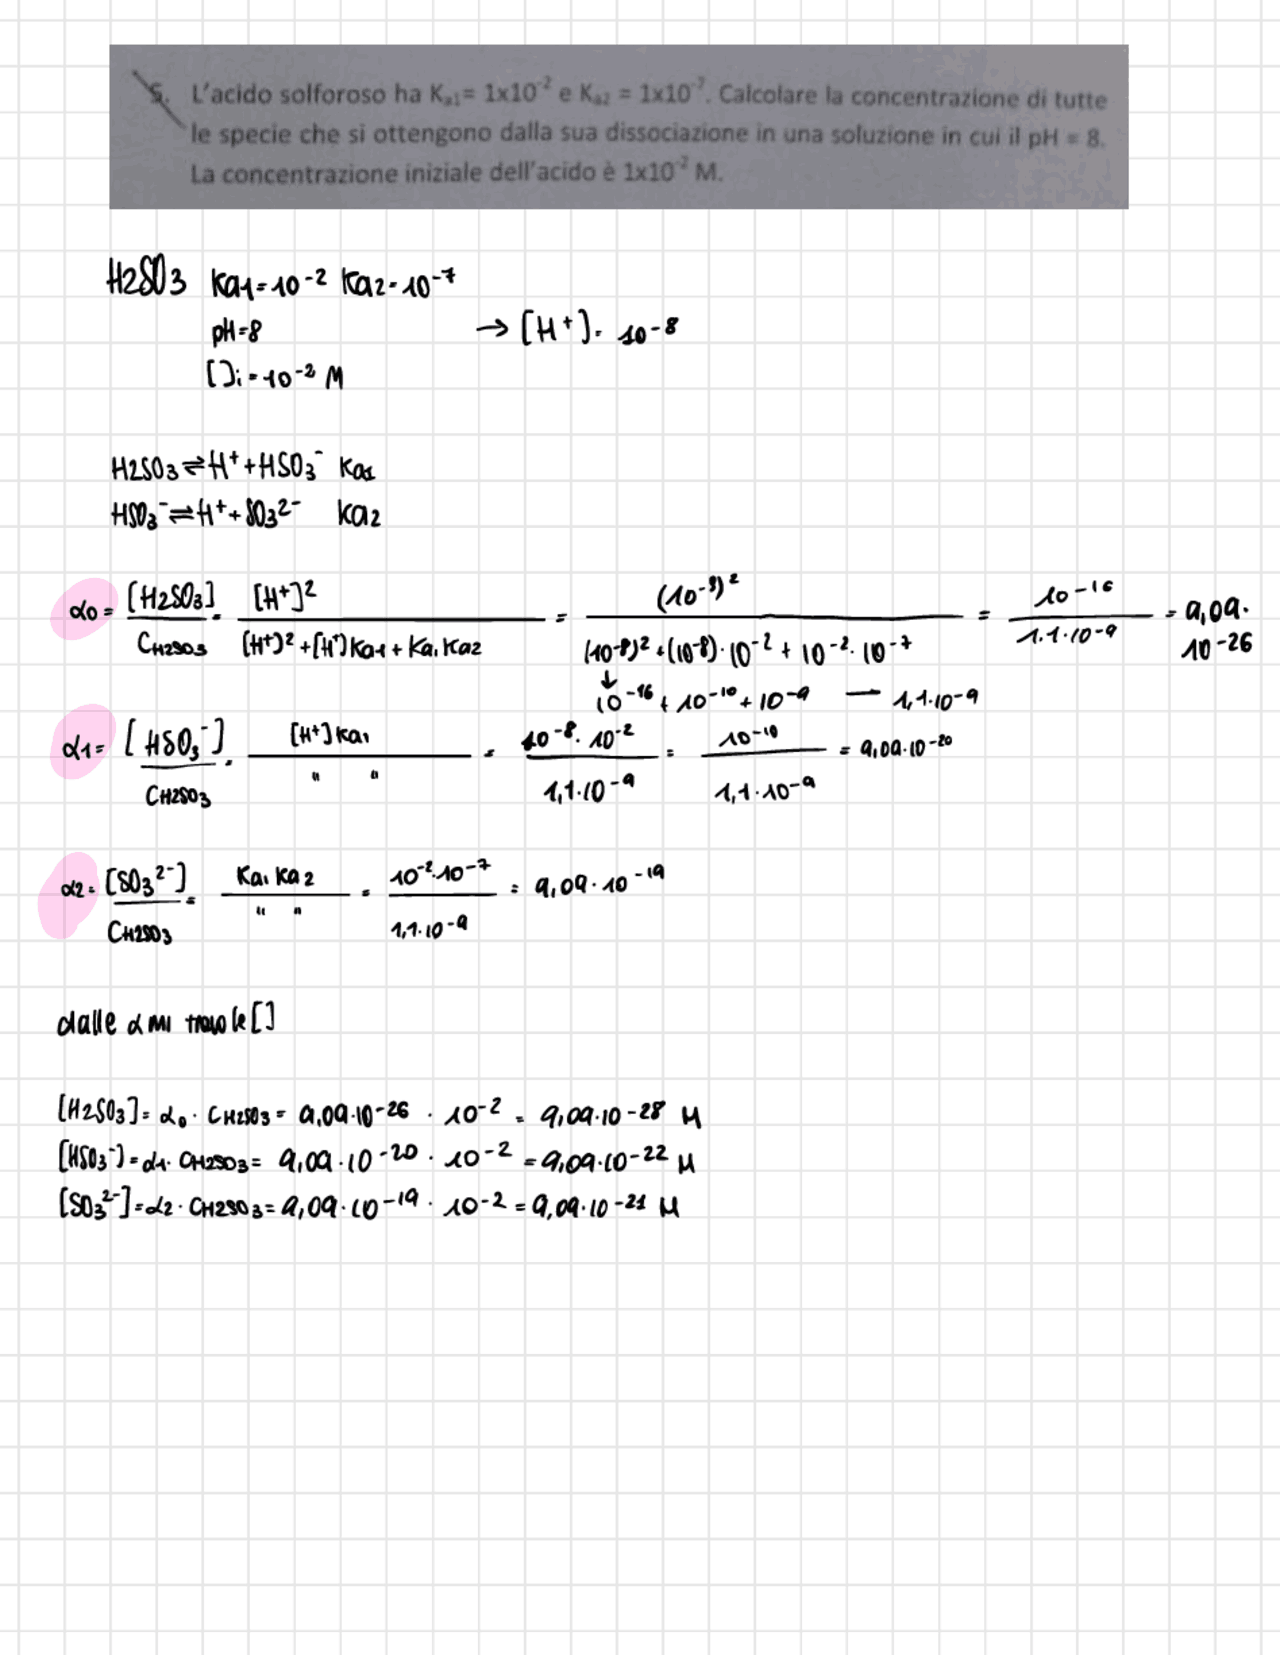 5. L'acido solforoso ha Ka1= 1x10⁻² e Ka2 = 1x10⁻⁷. Calcolare la concentrazione di tutte
le specie che si ottengono dalla sua dissociazione in una soluzione in cui il pH = 8.
La concentrazione iniziale dell'acido è 1x10⁻² M.
H2SO3 Ka1=10⁻² Ka2=10⁻⁷
pH=8 → [H⁺]= 10⁻⁸
[]i=10⁻² M
H2SO3⇌H⁺+HSO3⁻ Ka1
HSO3⁻⇌H⁺+SO3²⁻ Ka2
α0= [H2SO3]/CH2SO3 = [H⁺]²/([H⁺]²+[H⁺]Ka1+Ka1Ka2) = (10⁻⁸)²/((10⁻⁸)²+(10⁻⁸)·10⁻²+10⁻²·10⁻⁷) = 10⁻¹⁶/1.1·10⁻⁹ = 9,09·10⁻²⁶
↓
10⁻¹⁶+10⁻¹⁰+10⁻⁹ — 1,1·10⁻⁹
α1= [HSO3⁻]/CH2SO3 = [H⁺]Ka1/" " = 10⁻⁸·10⁻²/1,1·10⁻⁹ = 10⁻¹⁰/1,1·10⁻⁹ = 9,09·10⁻²⁰
α2= [SO3²⁻]/CH2SO3 = Ka1Ka2/" " = 10⁻²·10⁻⁷/1,1·10⁻⁹ = 9,09·10⁻¹⁹
dalle α mi trovo le []
[H2SO3]=α0·CH2SO3= 9,09·10⁻²⁶ · 10⁻² = 9,09·10⁻²⁸ M
[HSO3⁻]=α1·CH2SO3= 9,09·10⁻²⁰ · 10⁻² =9,09·10⁻²² M
[SO3²⁻]=α2·CH2SO3=9,09·10⁻¹⁹ · 10⁻² =9,09·10⁻²¹ M